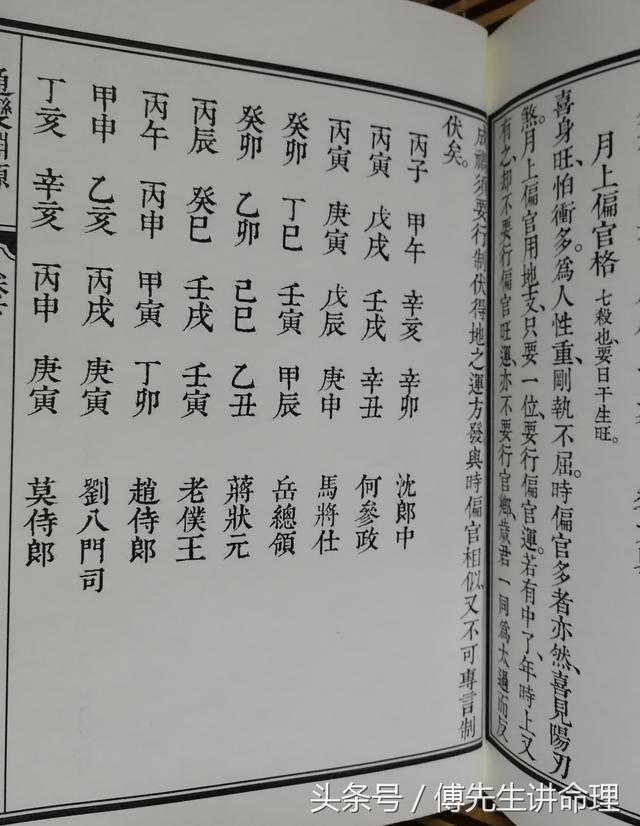 月上偏官格 七殺也、要日干生旺。
喜身旺、怕衝多。為人性重、剛執不屈。時偏官多者亦然、喜見陽刃
煞。月上偏官用地支、只要一位、要行偏官運。若有中了、年時上又
有之、却不要行偏官旺運、亦不要行官鄉、歲君一同、為太過、而反
成禍、須要行制伏得地之運方發、與時偏官相似、又不可專言制
伏矣。
丙子 甲午 辛亥 辛卯 沈郎中
丙寅 戊戌 壬戌 辛丑 何參政
丙寅 庚寅 戊辰 庚申 馬將仕
癸卯 丁巳 壬寅 甲辰 岳總領
癸卯 乙卯 己巳 乙丑 蔣狀元
丙辰 癸巳 壬戌 壬寅 老僕王
丙午 丙申 甲寅 丁卯 趙侍郎
甲申 乙亥 丙戌 庚寅 劉八門司
丁亥 辛亥 丙申 庚寅 莫侍郎
通變淵源
头条号 / 傅先生讲命理